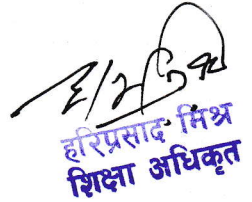 हरिप्रसाद मिश्र
शिक्षा अधिकृत